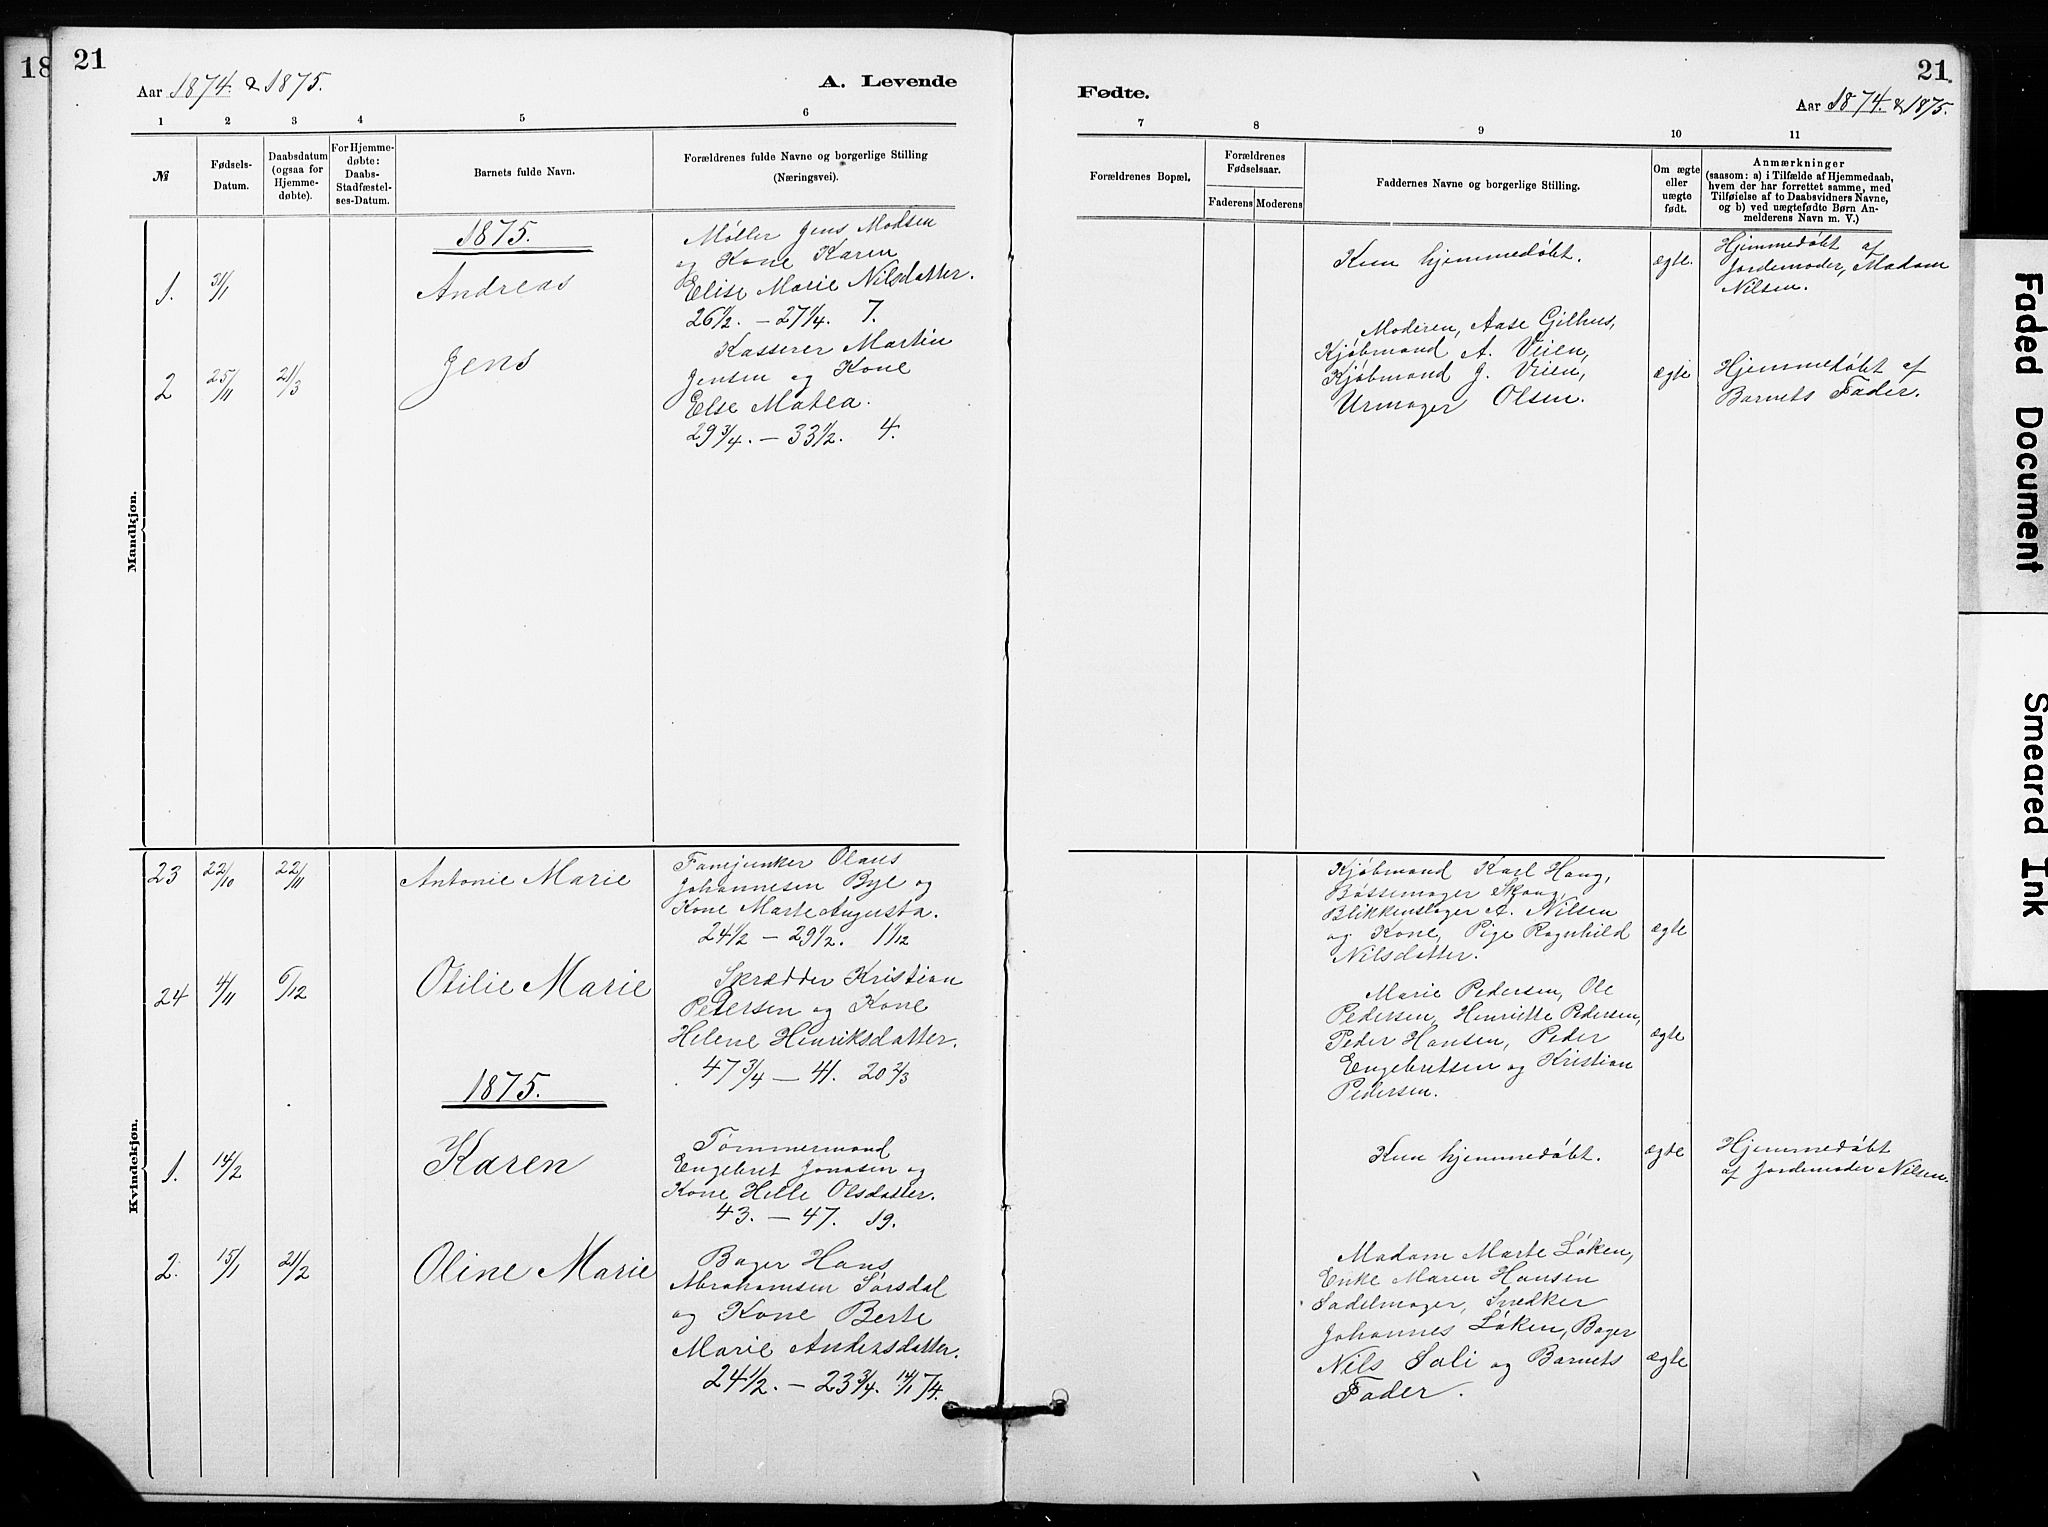 18
21
Aar 1874. & 1875.
A. Levende
1 2 3 4 5 6
№
Fødsels-
Datum.
Daabsdatum
(ogsaa for
Hjemme-
døbte).
For Hjemme-
døbte:
Daabs-
Stadfæstel-
ses-Datum.
Barnets fulde Navn.
Forældrenes fulde Navne og borgerlige Stilling
(Næringsvei).
Mandkjøn.
1875.
1. 31/1 Andreas
Møller Jens Madsen
og Kone Karen
Elise Marie Nilsdatter.
26 1/2. – 27 1/4. 7.
2 25/11 21/3 Jens
Kasserer Martin
Jensen og Kone
Else Matea.
29 3/4. – 33 1/2. 4.
Kvindekjøn.
23 22/10 22/11 Antonie Marie
Fanejunker Olaus
Johannesen Bye og
Kone Marte Augusta.
24 1/2 – 29 1/2. 1 1/12
24 4/11 6/12 Otilie Marie
Skrædder Kristian
Petersen og Kone
Helene Henriksdatter.
47 3/4 – 41. 20 2/3
1875.
1. 14/2 Karen
Tømmermand
Engebret Jonasen og
Kone Helle Olsdatter.
43. – 47. 19.
2. 15/1 21/2 Oline Marie
Bager Hans
Abrahamsen Sørsdal
og Kone Berte
Marie Andersdatter.
24 1/2. – 23 3/4. 14/1 74.
21
Fødte.
Aar 1874. & 1875.
7 8 9 10 11
Forældrenes Bopæl.
Forældrenes
Fødselsaar.
Faderens Moderens
Faddernes Navne og borgerlige Stilling.
Om ægte
eller
uægte
født.
Anmærkninger
(saasom: a) i Tilfælde af Hjemmedaab,
hvem der har forrettet samme, med
Tilføielse af to Daabsvidners Navne,
og b) ved uægtefødte Børn An-
melderens Navn m. V.)
Kun hjemmedøbt.
ægte.
Hjemmedøbt af
Jordemoder, Madam
Nilsen.
Moderen, Aase Gilhus,
Kjøbmand A. Veien,
Kjøbmand J. Veien,
Urmager Olsen.
ægte
Hjemmedøbt af
Barnets Fader.
Kjøbmand Karl Haug,
Bøssemager Skaug,
Blikkenslager A. Nilsen
og Kone, Pige Ragnhild
Nilsdatter.
ægte
Marie Pedersen, Ole
Pedersen, Henriette Pedersen,
Peder Hansen, Peder
Engebretsen og Kristian
Pedersen.
ægte
Kun hjemmedøbt.
ægte
Hjemmedøbt
af Jordemoder Nilsen.
Madam Marte Løken,
Enke Maren Hansen
Sadelmager, Snedker
Johannes Løken, Bager
Nils Sali og Barnets
Fader.
ægte
Faded Document
Smeared Ink